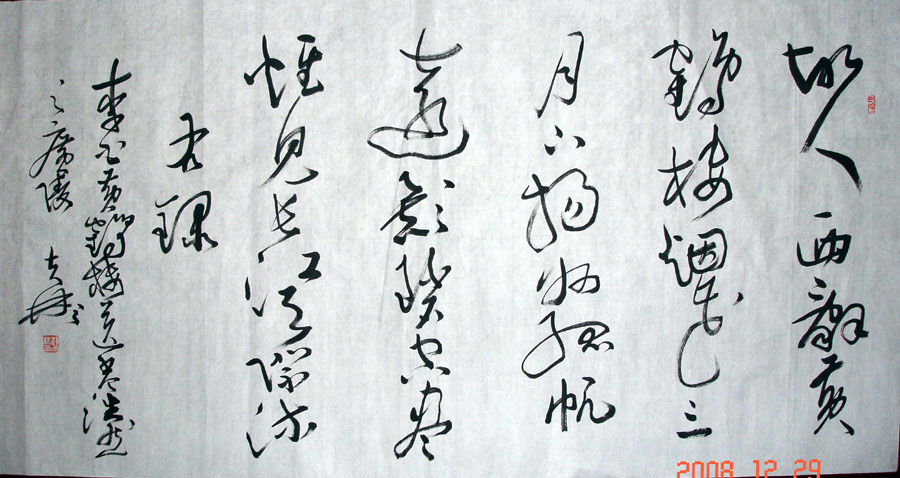 故人西辭黄
鶴楼烟花三
月下揚州孤帆
遠影碧空尽
惟見长江天際流
右録
李白黄鶴楼送孟浩然
之廣陵
2008 12 29